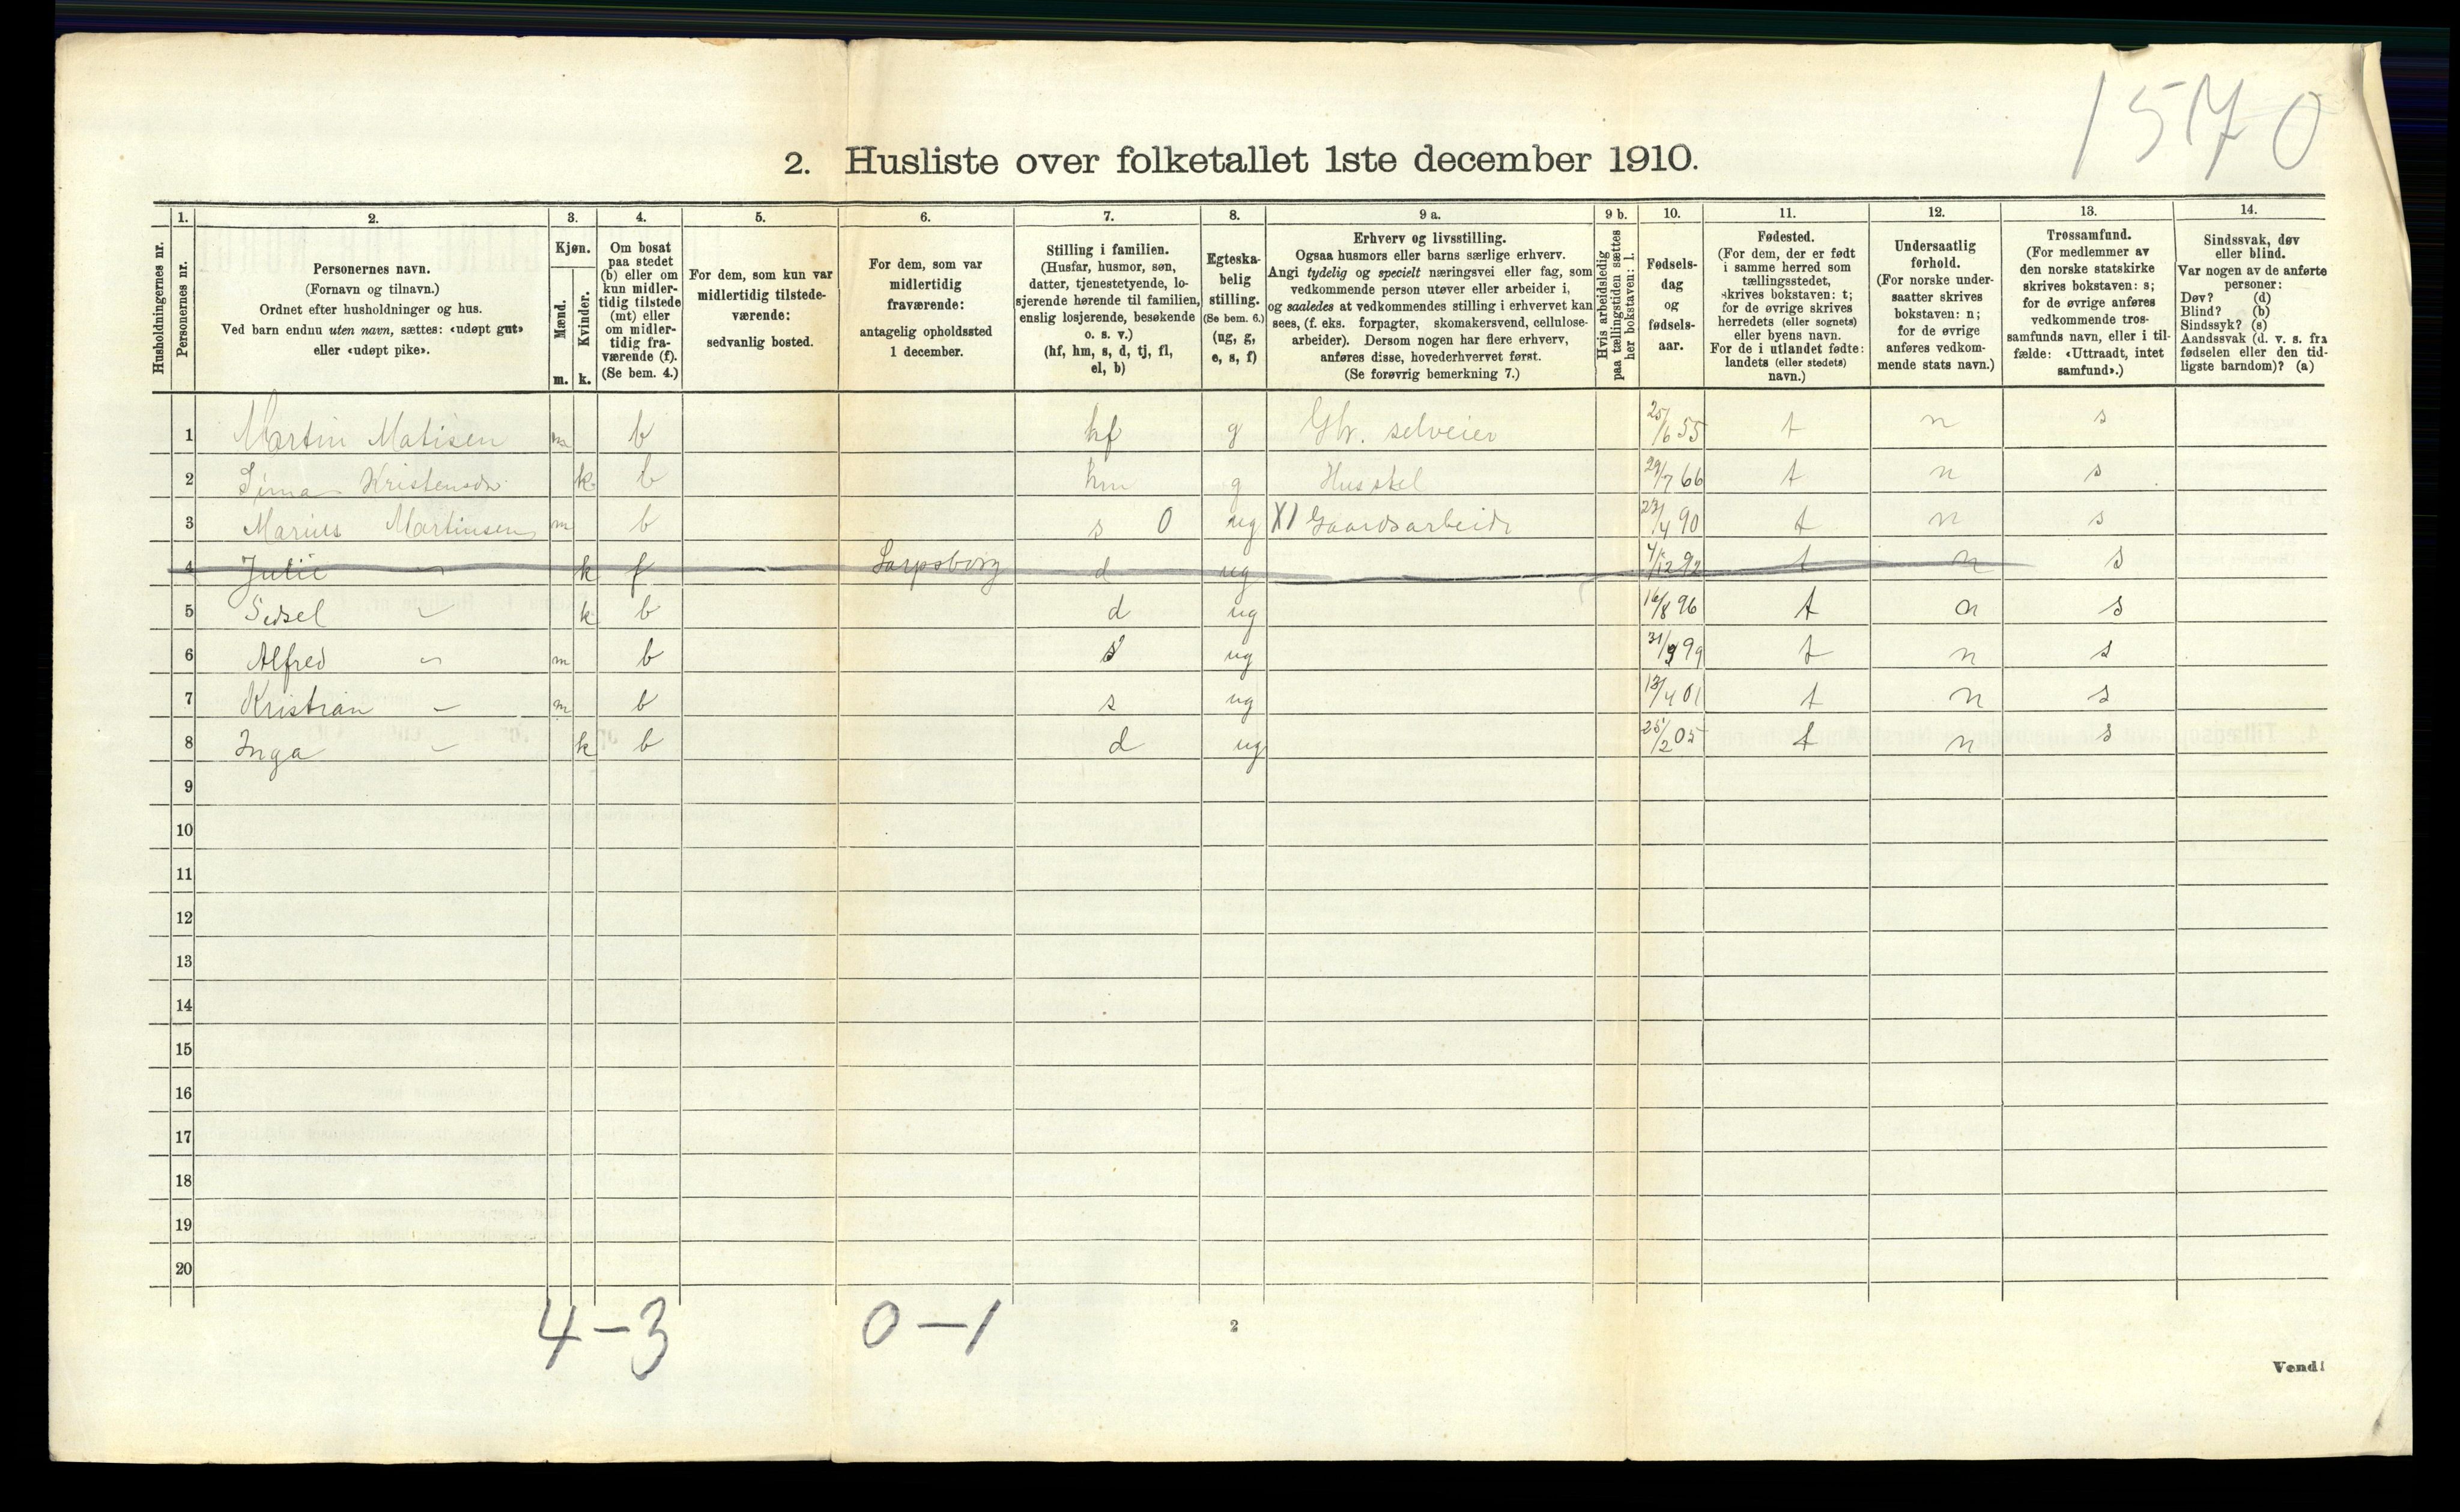 1570
2. Husliste over folketallet 1ste december 1910.
Husholdningernes nr.
1.
Personernes nr.
2.
Personernes navn.
(Fornavn og tilnavn.)
Ordnet efter husholdninger og hus.
Ved barn endnu uten navn, sættes: «udøpt gut»
eller «udøpt pike».
3.
Kjøn.
Mænd.
m.
Kvinder.
k.
4.
Om bosat
paa stedet
(b) eller om
kun midler-
tidig tilstede
(mt) eller
om midler-
tidig fra-
værende (f).
(Se bem. 4.)
5.
For dem, som kun var
midlertidig tilstede-
værende:
sedvanlig bosted.
6.
For dem, som var
midlertidig
fraværende:
antagelig opholdssted
1 december.
7.
Stilling i familien.
(Husfar, husmor, søn,
datter, tjenestetyende, lo-
sjerende hørende til familien,
enslig losjerende, besøkende
o. s. v.)
(hf, hm, s, d, tj, fl,
el, b)
8.
Egteska-
belig
stilling.
(Se bem. 6.)
(ug, g,
e, s, f)
9 a.
Erhverv og livsstilling.
Ogsaa husmors eller barns særlige erhverv.
Angi tydelig og specielt næringsvei eller fag, som
vedkommende person utøver eller arbeider i,
og saaledes at vedkommendes stilling i erhvervet kan
sees, (f. eks. forpagter, skomakersvend, cellulose-
arbeider). Dersom nogen har flere erhverv,
anføres disse, hovederhvervet først.
(Se forøvrig bemerkning 7.)
9 b.
Hvis arbeidsledig
paa tællingstiden sættes
her bokstaven: l.
10.
Fødsels-
dag
og
fødsels-
aar.
11.
Fødested.
(For dem, der er født
i samme herred som
tællingsstedet,
skrives bokstaven: t;
for de øvrige skrives
herredets (eller sognets)
eller byens navn.
For de i utlandet fødte:
landets (eller stedets)
navn.)
12.
Undersaatlig
forhold.
(For norske under-
saatter skrives
bokstaven: n;
for de øvrige
anføres vedkom-
mende stats navn.)
13.
Trossamfund.
(For medlemmer av
den norske statskirke
skrives bokstaven: s;
for de øvrige anføres
vedkommende tros-
samfunds navn, eller i til-
fælde: «Uttraadt, intet
samfund».)
14.
Sindssvak, døv
eller blind.
Var nogen av de anførte
personer:
Døv? (d)
Blind? (b)
Sindssyk? (s)
Aandssvak (d. v. s. fra
fødselen eller den tid-
ligste barndom)? (a)
1 Martin Matisen m b hf g Gbr. selveier 25/6 55 t n s
2 Kristensdr. k b hm g Husstel 29/7 66 t n s
3 Marius Martinsen m b s 0 ug X) Gaardsarbeidr 23/4 90 t n s
4 Julie – k f Sarpsborg d ug 4/12 92 t n s
5 Sidsel – k b d ug 16/8 96 t n s
6 Alfred – m b s ug 31/ 99 t n s
7 Kristian – m b s ug 13/4 01 t n s
8 Inga – k b d ug 25/2 05 t n s
9
10
11
12
13
14
15
16
17
18
19
20
4 – 3 0 – 1
2
Vend!